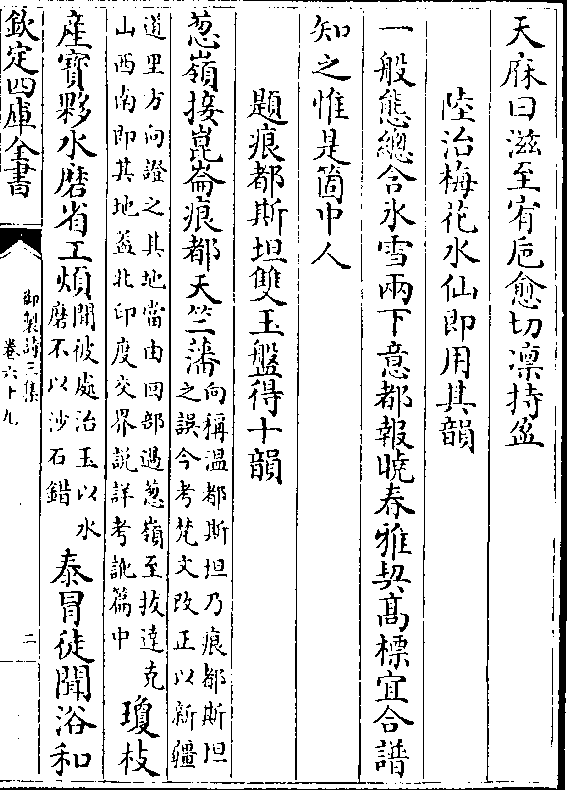 天庥曰滋至宥卮愈切凜持盈
陸治梅花水仙即用其韻
一般態總含氷雪兩下意都報曉春雅契髙標宜合譜
知之惟是箇中人
題痕都斯坦雙玉盤得十韻
葱嶺接崑崙痕都天竺藩
向稱温都斯坦乃痕都斯坦
之誤今考梵文改正以新疆
道里方向證之其地當由回部過葱嶺至拔達克
山西南即其地葢北印度交界說詳考訛篇中
瓊枝
産寳夥水磨省工煩
聞彼處治玉以水
磨不以沙石錯
泰冒徒聞浴和
欽定四庫全書
御製詩三集
卷六十九
二